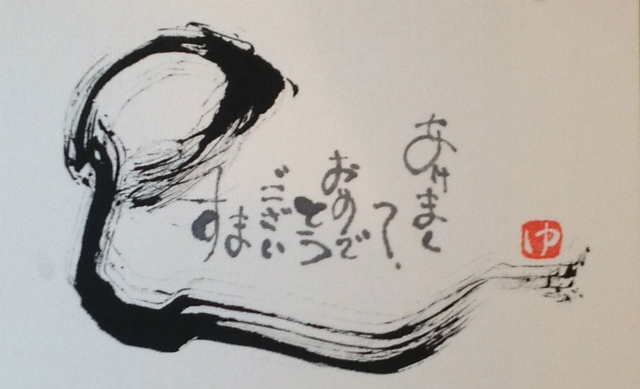 あけまして
おめで
とう
ござい
ます
ゆ